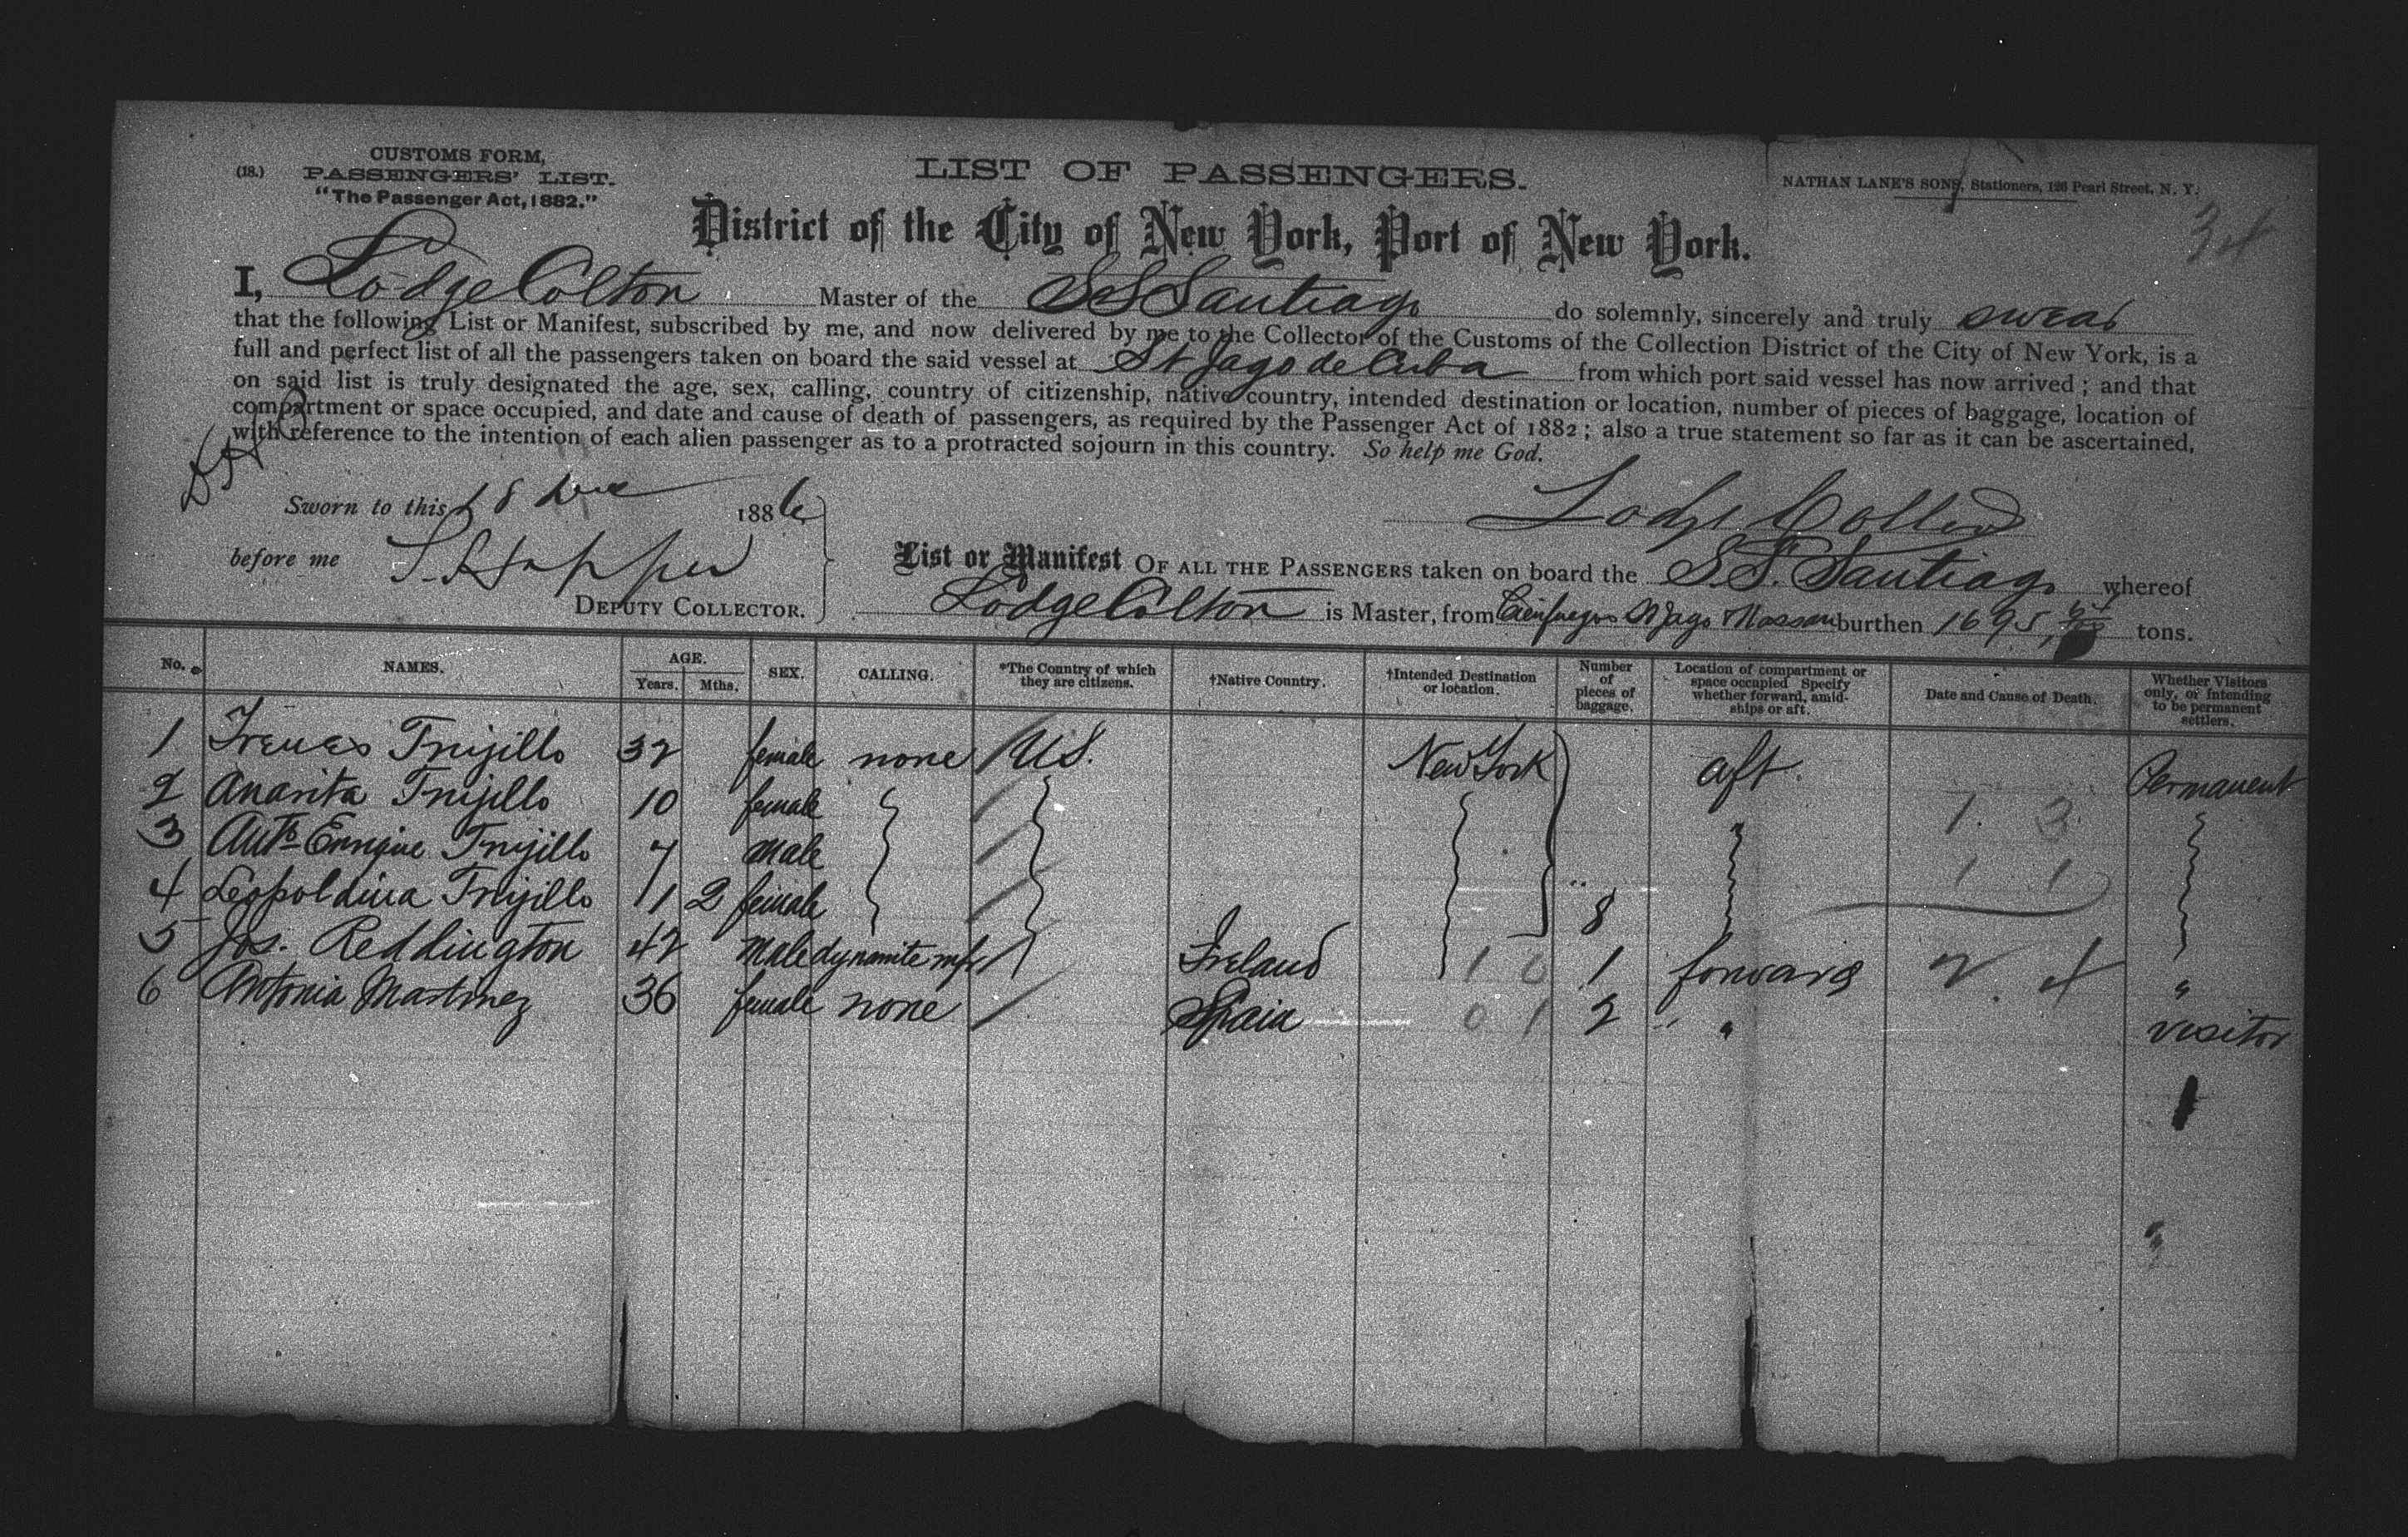 (18.)
CUSTOMS FORM,
PASSENGERS' LIST.
"The Passenger Act, 1882."
LIST OF PASSENGERS.
NATHAN LANE'S SONS, Stationers, 126 Pearl Street, N. Y.
34
District of the City of New York, Port of New York.
I, Lodge Colton Master of the SS Santiago do solemnly, sincerely and truly swear
that the following List or Manifest, subscribed by me, and now delivered by me to the Collector of the Customs of the Collection District of the City of New York, is a
full and perfect list of all the passengers taken on board the said vessel at St Jago de Cuba from which port said vessel has now arrived; and that
on said list is truly designated the age, sex, calling, country of citizenship, native country, intended destination or location, number of pieces of baggage, location of
compartment or space occupied, and date and cause of death of passengers, as required by the Passenger Act of 1882; also a true statement so far as it can be ascertained,
with reference to the intention of each alien passenger as to a protracted sojourn in this country. So help me God.
Sworn to this 18 Dec 1886
Lodge Colton
before me Hopper
DEPUTY COLLECTOR.
List or Manifest OF ALL THE PASSENGERS taken on board the S.S. Santiago whereof
Lodge Colton is Master, from Cienfuegos St Jago Nassau burthen 1695 tons.
No. NAMES. AGE. Years. Mths. SEX. CALLING. *The Country of which they are citizens. †Native Country. †Intended Destination or location. Number of pieces of baggage. Location of compartment or space occupied Specify whether forward, amidships or aft. Date and Cause of Death. Whether Visitors only, or intending to be permanent settlers.
1 Trujillo 32 female none US. New York aft. Permanent
2 Anarita Trujillo 10 female 1. 3.
3 Anto Enrique Trujillo 7 Male 1 1
4 Leopoldina Trujillo 11 2 female 8
5 Jos. Reddington 42 Male dynamite mfr Ireland 1 0 1 forward 2. 4 "
6 Antonia Martinez 36 female none Spain 0 1 2 " " visitor